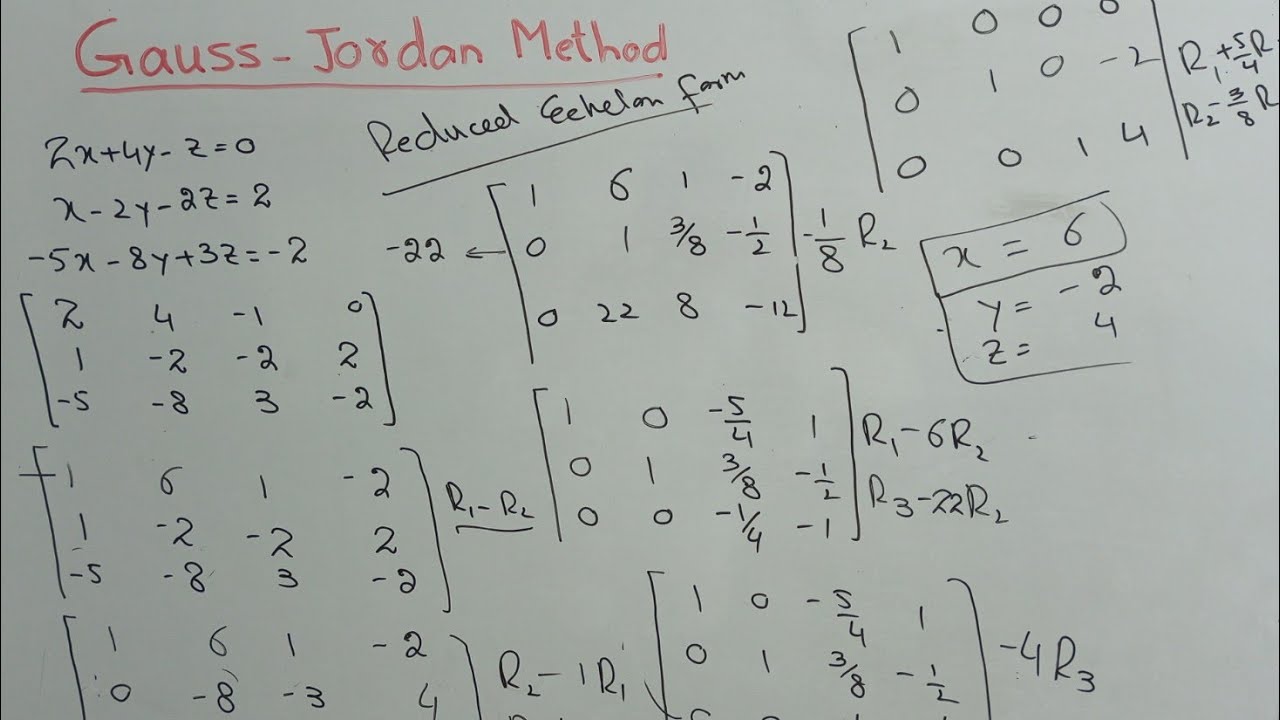 Gauss-Jordan Method
Reduced Eehelon form
2x+4y-z=0
x-2y-2z=2
-5x-8y+3z=-2
2 4 -1 0
1 -2 -2 2
-5 -8 3 -2
1 6 1 -2
1 -2 -2 2
-5 -8 3 -2
R₁-R₂
1 6 1 -2
0 -8 -3 4
R₂-1R₁
1 6 1 -2
-22 ← 0 1 3/8 -1/2 -1/8 R₂
0 22 8 -12
1 0 -5/4 1
0 1 3/8 -1/2
0 0 -1/4 -1
R₁-6R₂
R₃-22R₂
1 0 -5/4 1
0 1 3/8 -1/2
-4R₃
1 0 0 0
0 1 0 -2
0 0 1 4
R₁+5/4R
R₂-3/8R
x = 6
y = -2
z = 4